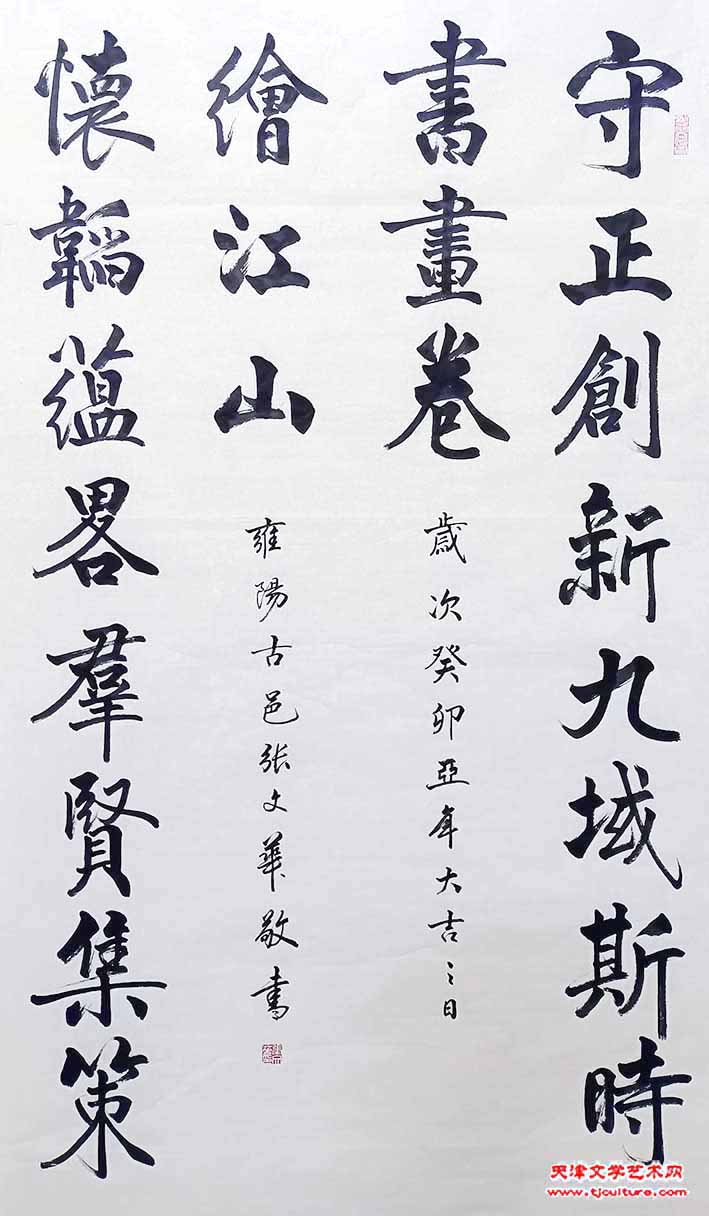 守正創新九域斯時
書畫卷
歲次癸卯亞年大吉之日
懷韜蘊畧羣賢集策
繪江山
雍陽古邑張文華敬書
天津文学艺术网
www.tjculture.com